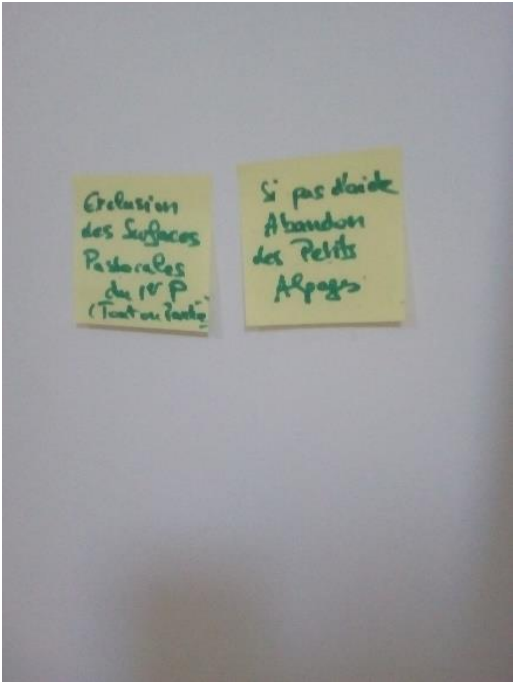 Exclusion
des Surfaces
Pastorales
du 1er P
(Tout ou Partie)
Si pas d'aide
Abandon
des Petits
Alpages